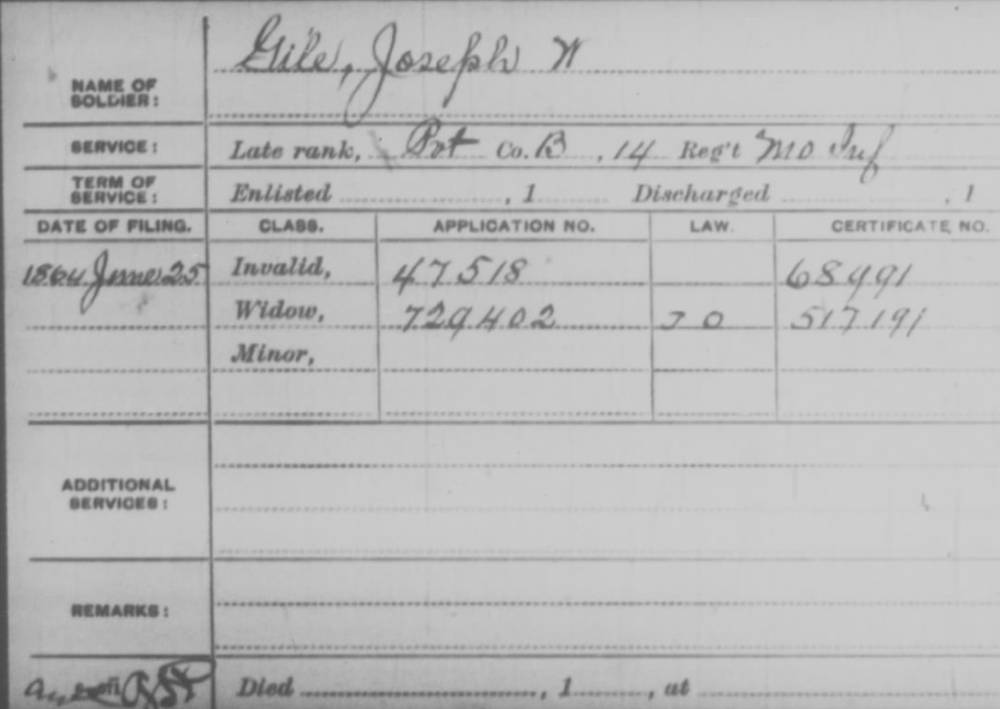 Gile, Joseph W
NAME OF
SOLDIER:
SERVICE: Late rank, Pvt Co. B, 14 Reg't Mo Inf
TERM OF
SERVICE: Enlisted , 1 Discharged , 1
DATE OF FILING. CLASS. APPLICATION NO. LAW. CERTIFICATE NO.
1864 June 25 Invalid, 47518 68491
Widow, 729402 517191
Minor,
ADDITIONAL
SERVICES:
REMARKS:
Died , 1 , at